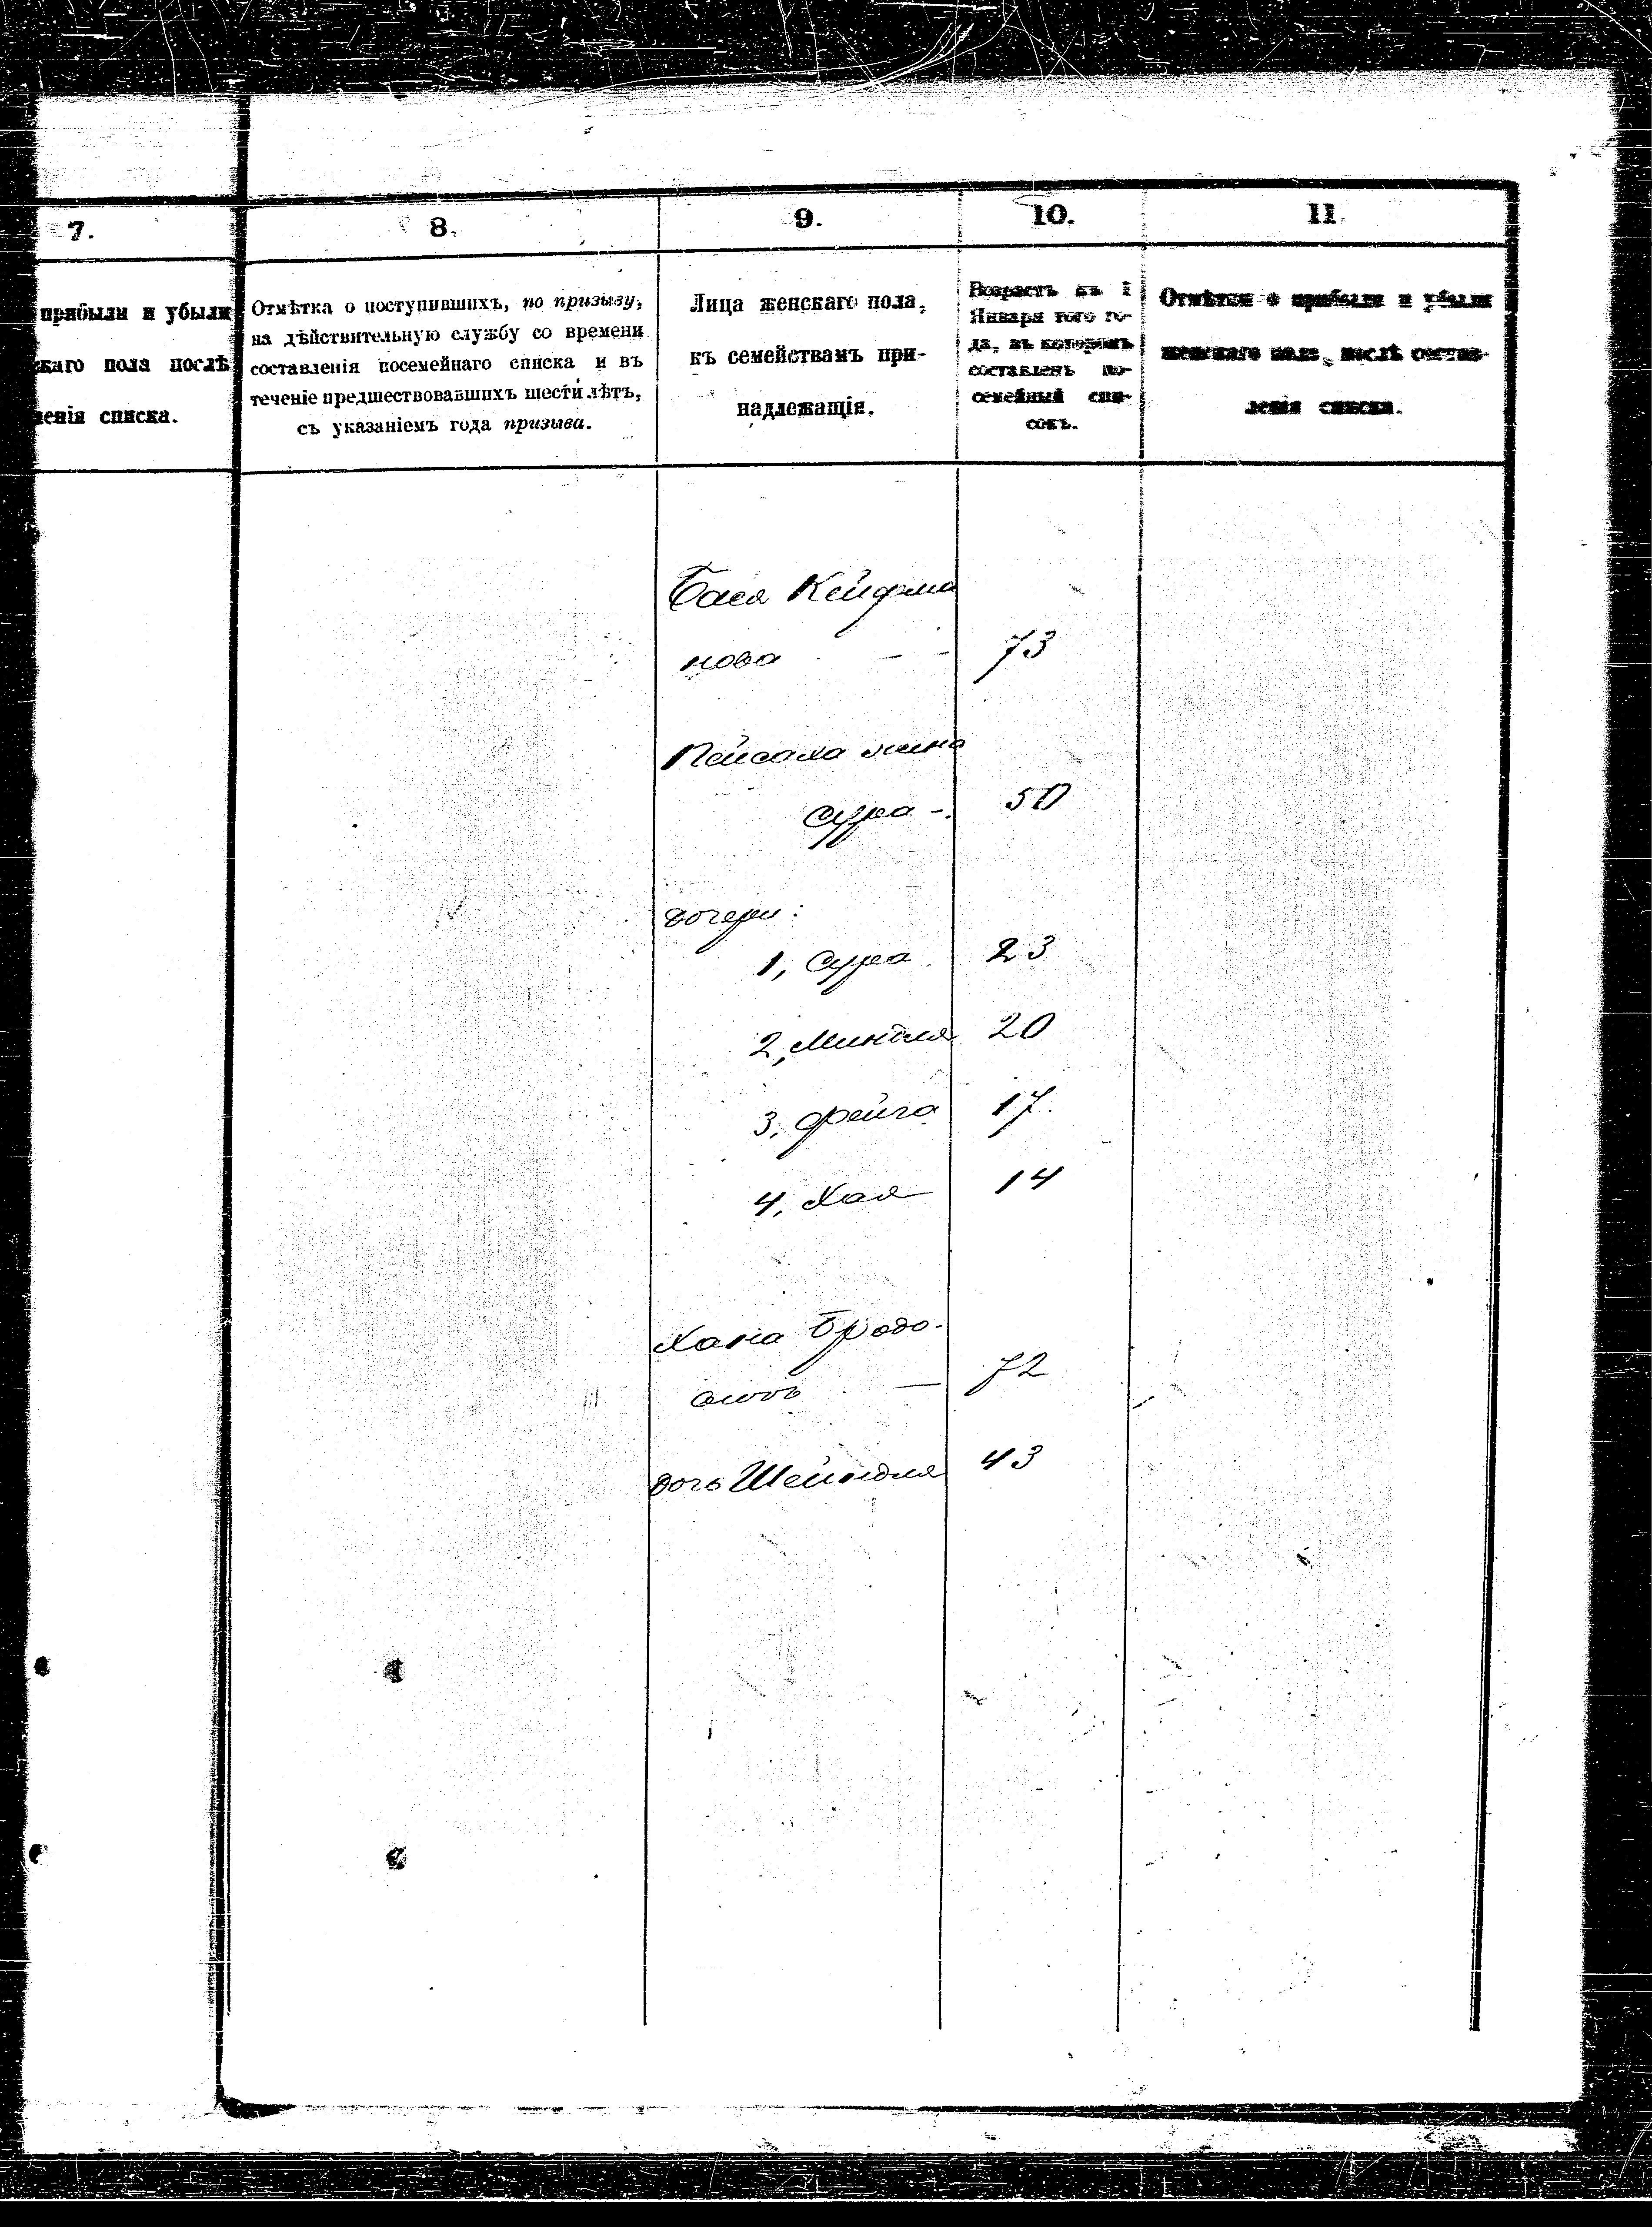 7.
8.
9.
10.
11
прибыли и убыли
каго пола послѣ
ленія списка.
Отмѣтка о поступившихъ, по призыву,
на дѣйствительную службу со времени
составленія посемейнаго списка и въ
теченіе предшествовавшихъ шести лѣтъ,
съ указаніемъ года призыва.
Лица женскаго пола,
къ семействамъ при-
надлежащія.
Возрастъ къ 1
Января того го-
да, въ которомъ
составленъ по-
семейный спи-
сокъ.
Отмѣтки о прибыли и убыли
женскаго пола, послѣ состав-
ленія списка.
Бася
нова - - 73
Пейсаха жена
Сура - 50
дочери:
1, Сура 23
2, Миндля 20
3, Фейга 17.
4, Хая 14
Хана
— 72
дочь Шейндля 43